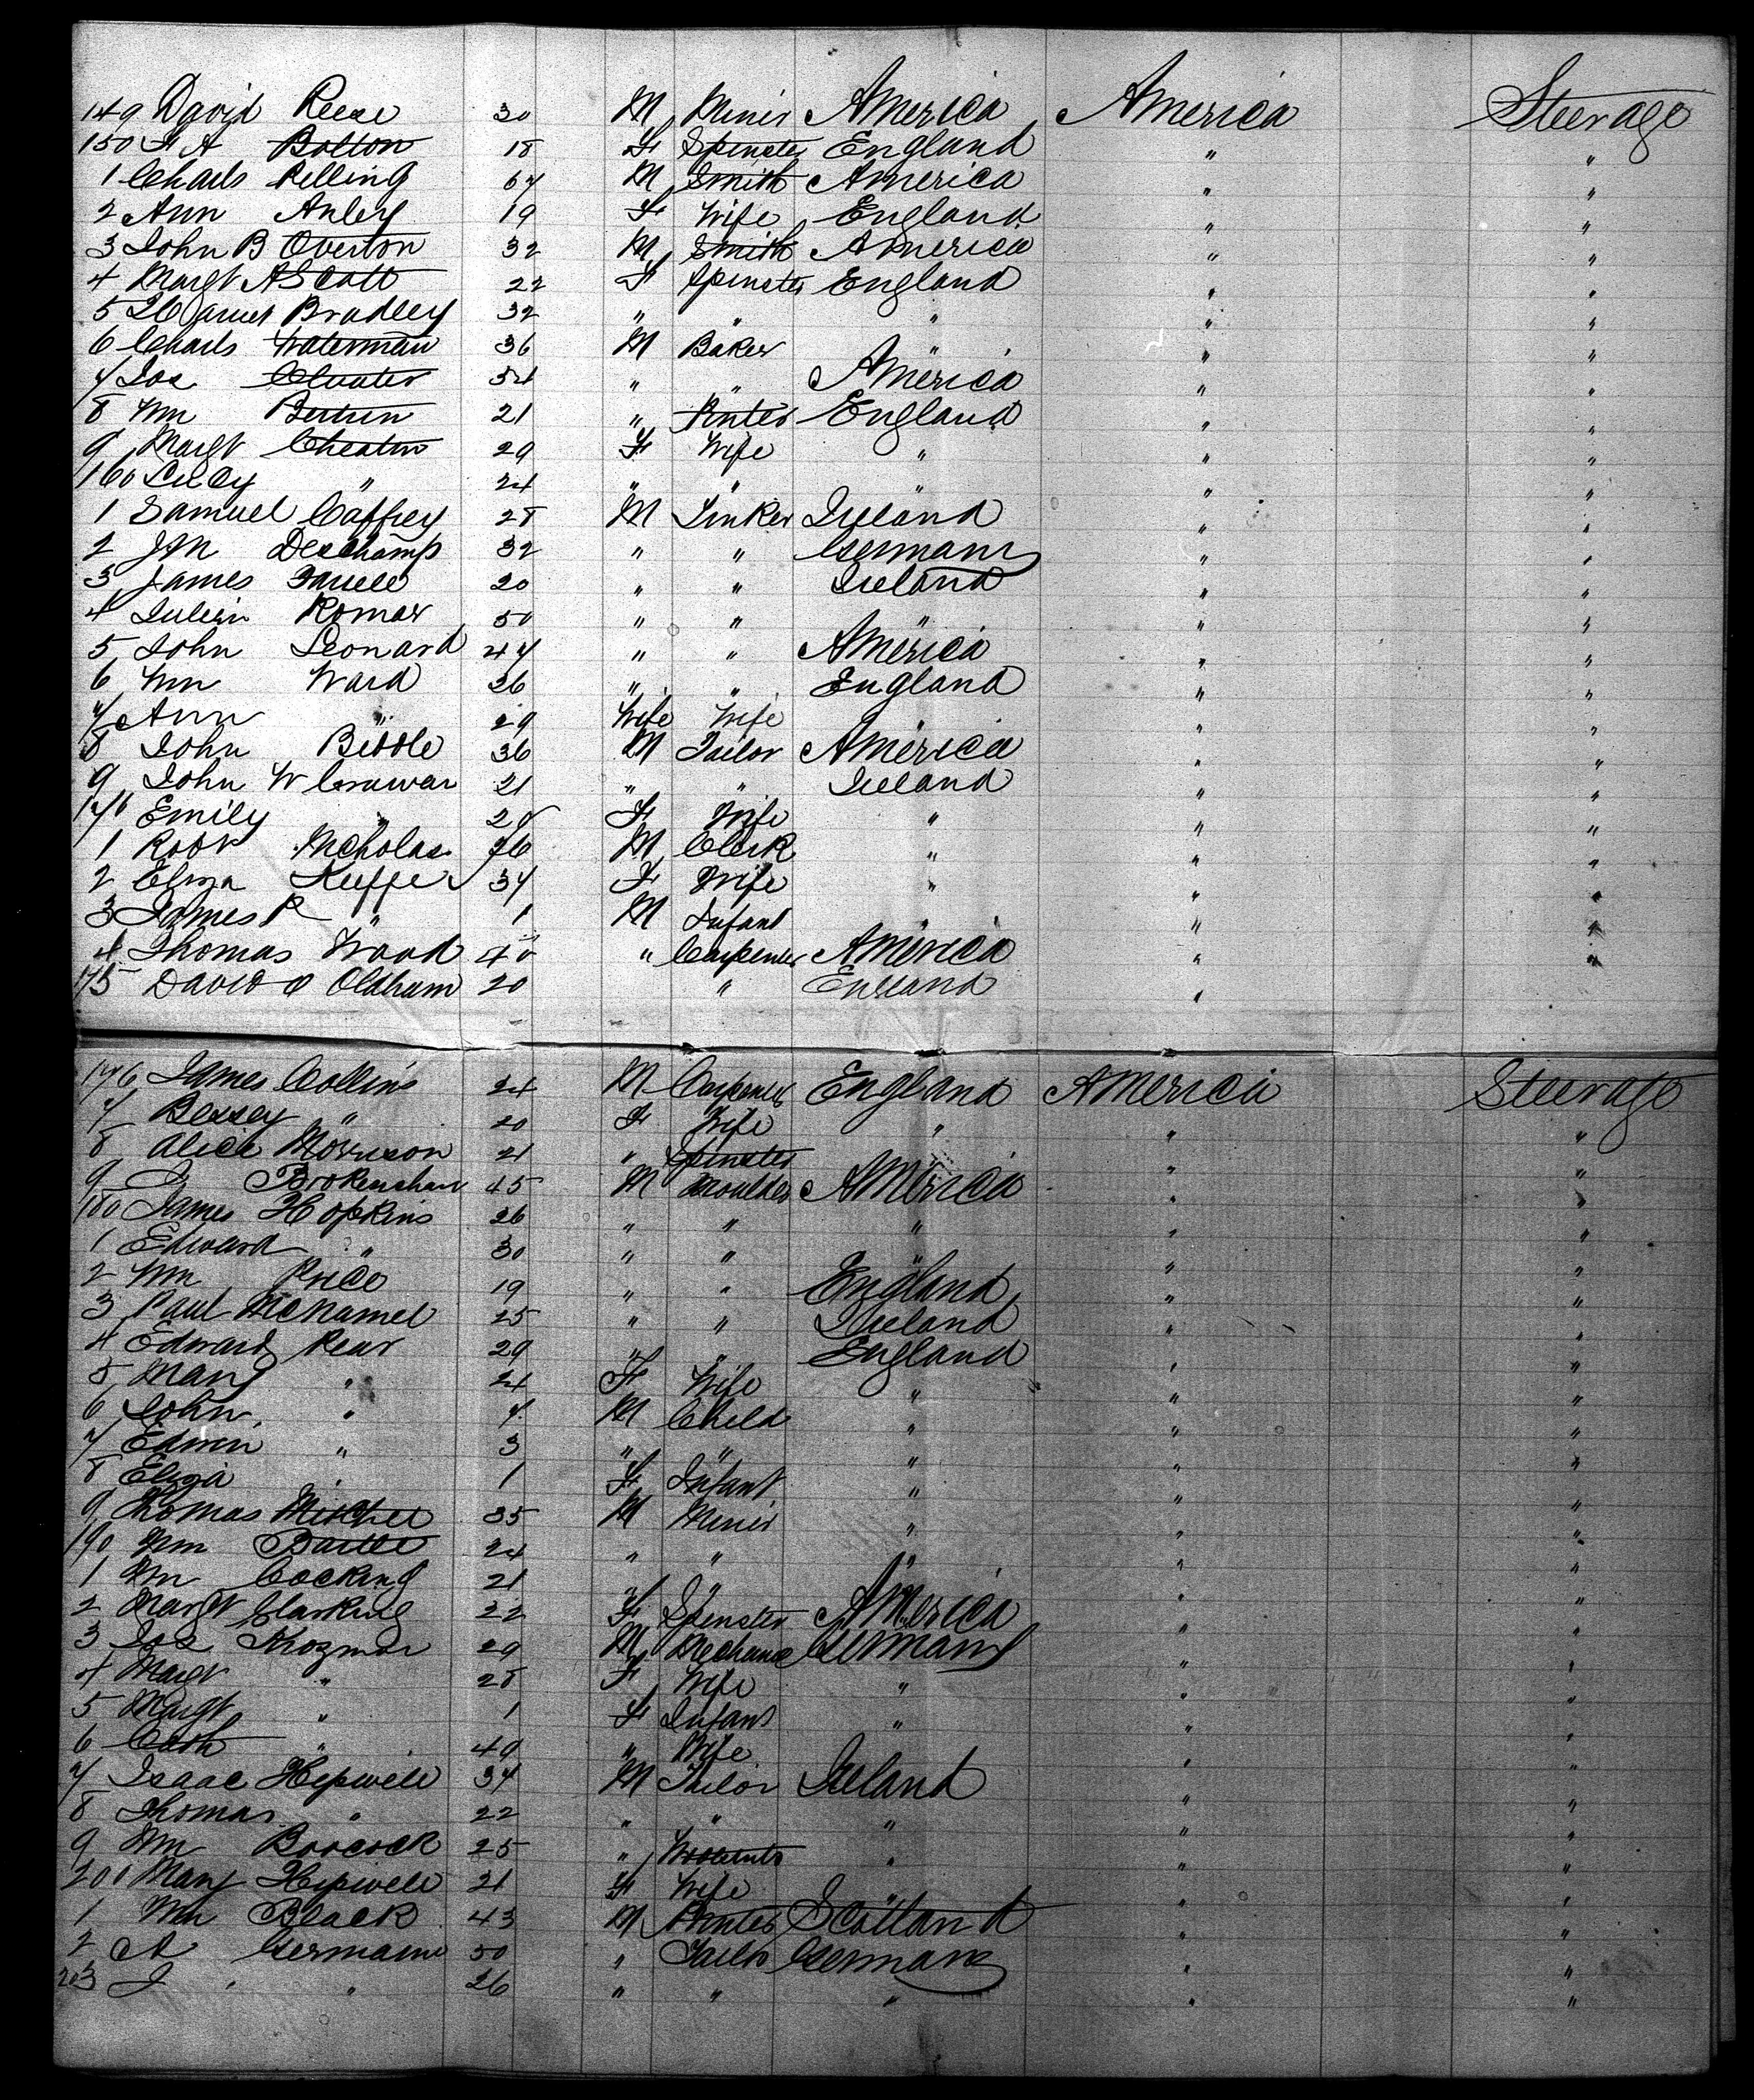 149 David Reese 30 M Miner America America Steerage
150 F A Bolton 18 F Spinster England " "
1 Charls Pelling 67 M Smith America " "
2 Ann Anley 19 F Wife England " "
3 John B Overton 32 M Smith America " "
4 Margt A Scott 22 F Spinster England " "
5 Bradley 32 " " " " "
6 Charls Waterman 36 M Baker " " "
7 Jos 34 " " America " "
8 Wm 21 " Printer England " "
9 Margt Cheatin 29 F Wife " " "
160 Lucy " 24 " " " " "
1 Samuel Caffrey 28 M Tinker Ireland " "
2 Deschamp 32 " " Germany " "
3 James Farrell 20 " " Ireland " "
4 Julien Romar 50 " " " " "
5 John Leonard 47 " " America " "
6 Wm Ward 26 " " England " "
7 Ann " 29 Wife Wife " " "
8 John Biddle 36 M Tailor America " "
9 John W 21 " " Ireland " "
170 Emily " 20 F Wife " " "
1 Robt Nicholas 26 M Clerk " " "
2 Eliza Keeffe 34 F Wife " " "
3 James R " 1 M Infant " " "
4 Thomas Wood 40 " Carpenter America " "
175 David Oldham 20 " England "
176 James Collins 24 M Carpenter England America Steerage
7 Bessey " 20 F Wife " " "
8 Alice Morrison 21 " Spinster " "
9 J Brokenshaw 45 M Moulder America " "
180 James Hopkins 26 " " " " "
1 Edward " 30 " " " " "
2 Wm Price 19 " " England " "
3 Paul McNamel 25 " " Ireland " "
4 Edward Rear 29 " " England " "
5 Mary " 24 F Wife " " "
6 John " 7 M Child " " "
7 Edwin " 3 " " " " "
8 Eliza " 1 F Infant " " "
9 Thomas Mitchel 35 M Miner " " "
190 Wm 24 " " " " "
1 Wm Cocking 21 " " " " "
2 Margt 22 F Spinster America " "
3 Jos 29 M Mechanic Germany " "
4 Margt " 28 F Wife " " "
5 Margt " 1 F Infant " " "
6 Cath " 49 " Wife " "
7 Isaac Hepwell 34 M Tailor Ireland " "
8 Thomas " 22 " " " " "
9 Wm Boocock 25 " " " "
200 Mary Hepwell 21 F Wife " " "
1 Wm Black 43 M Printer Scotland " "
2 A Germaine 50 " Tailor Germany " "
203 J " 26 " " " " "